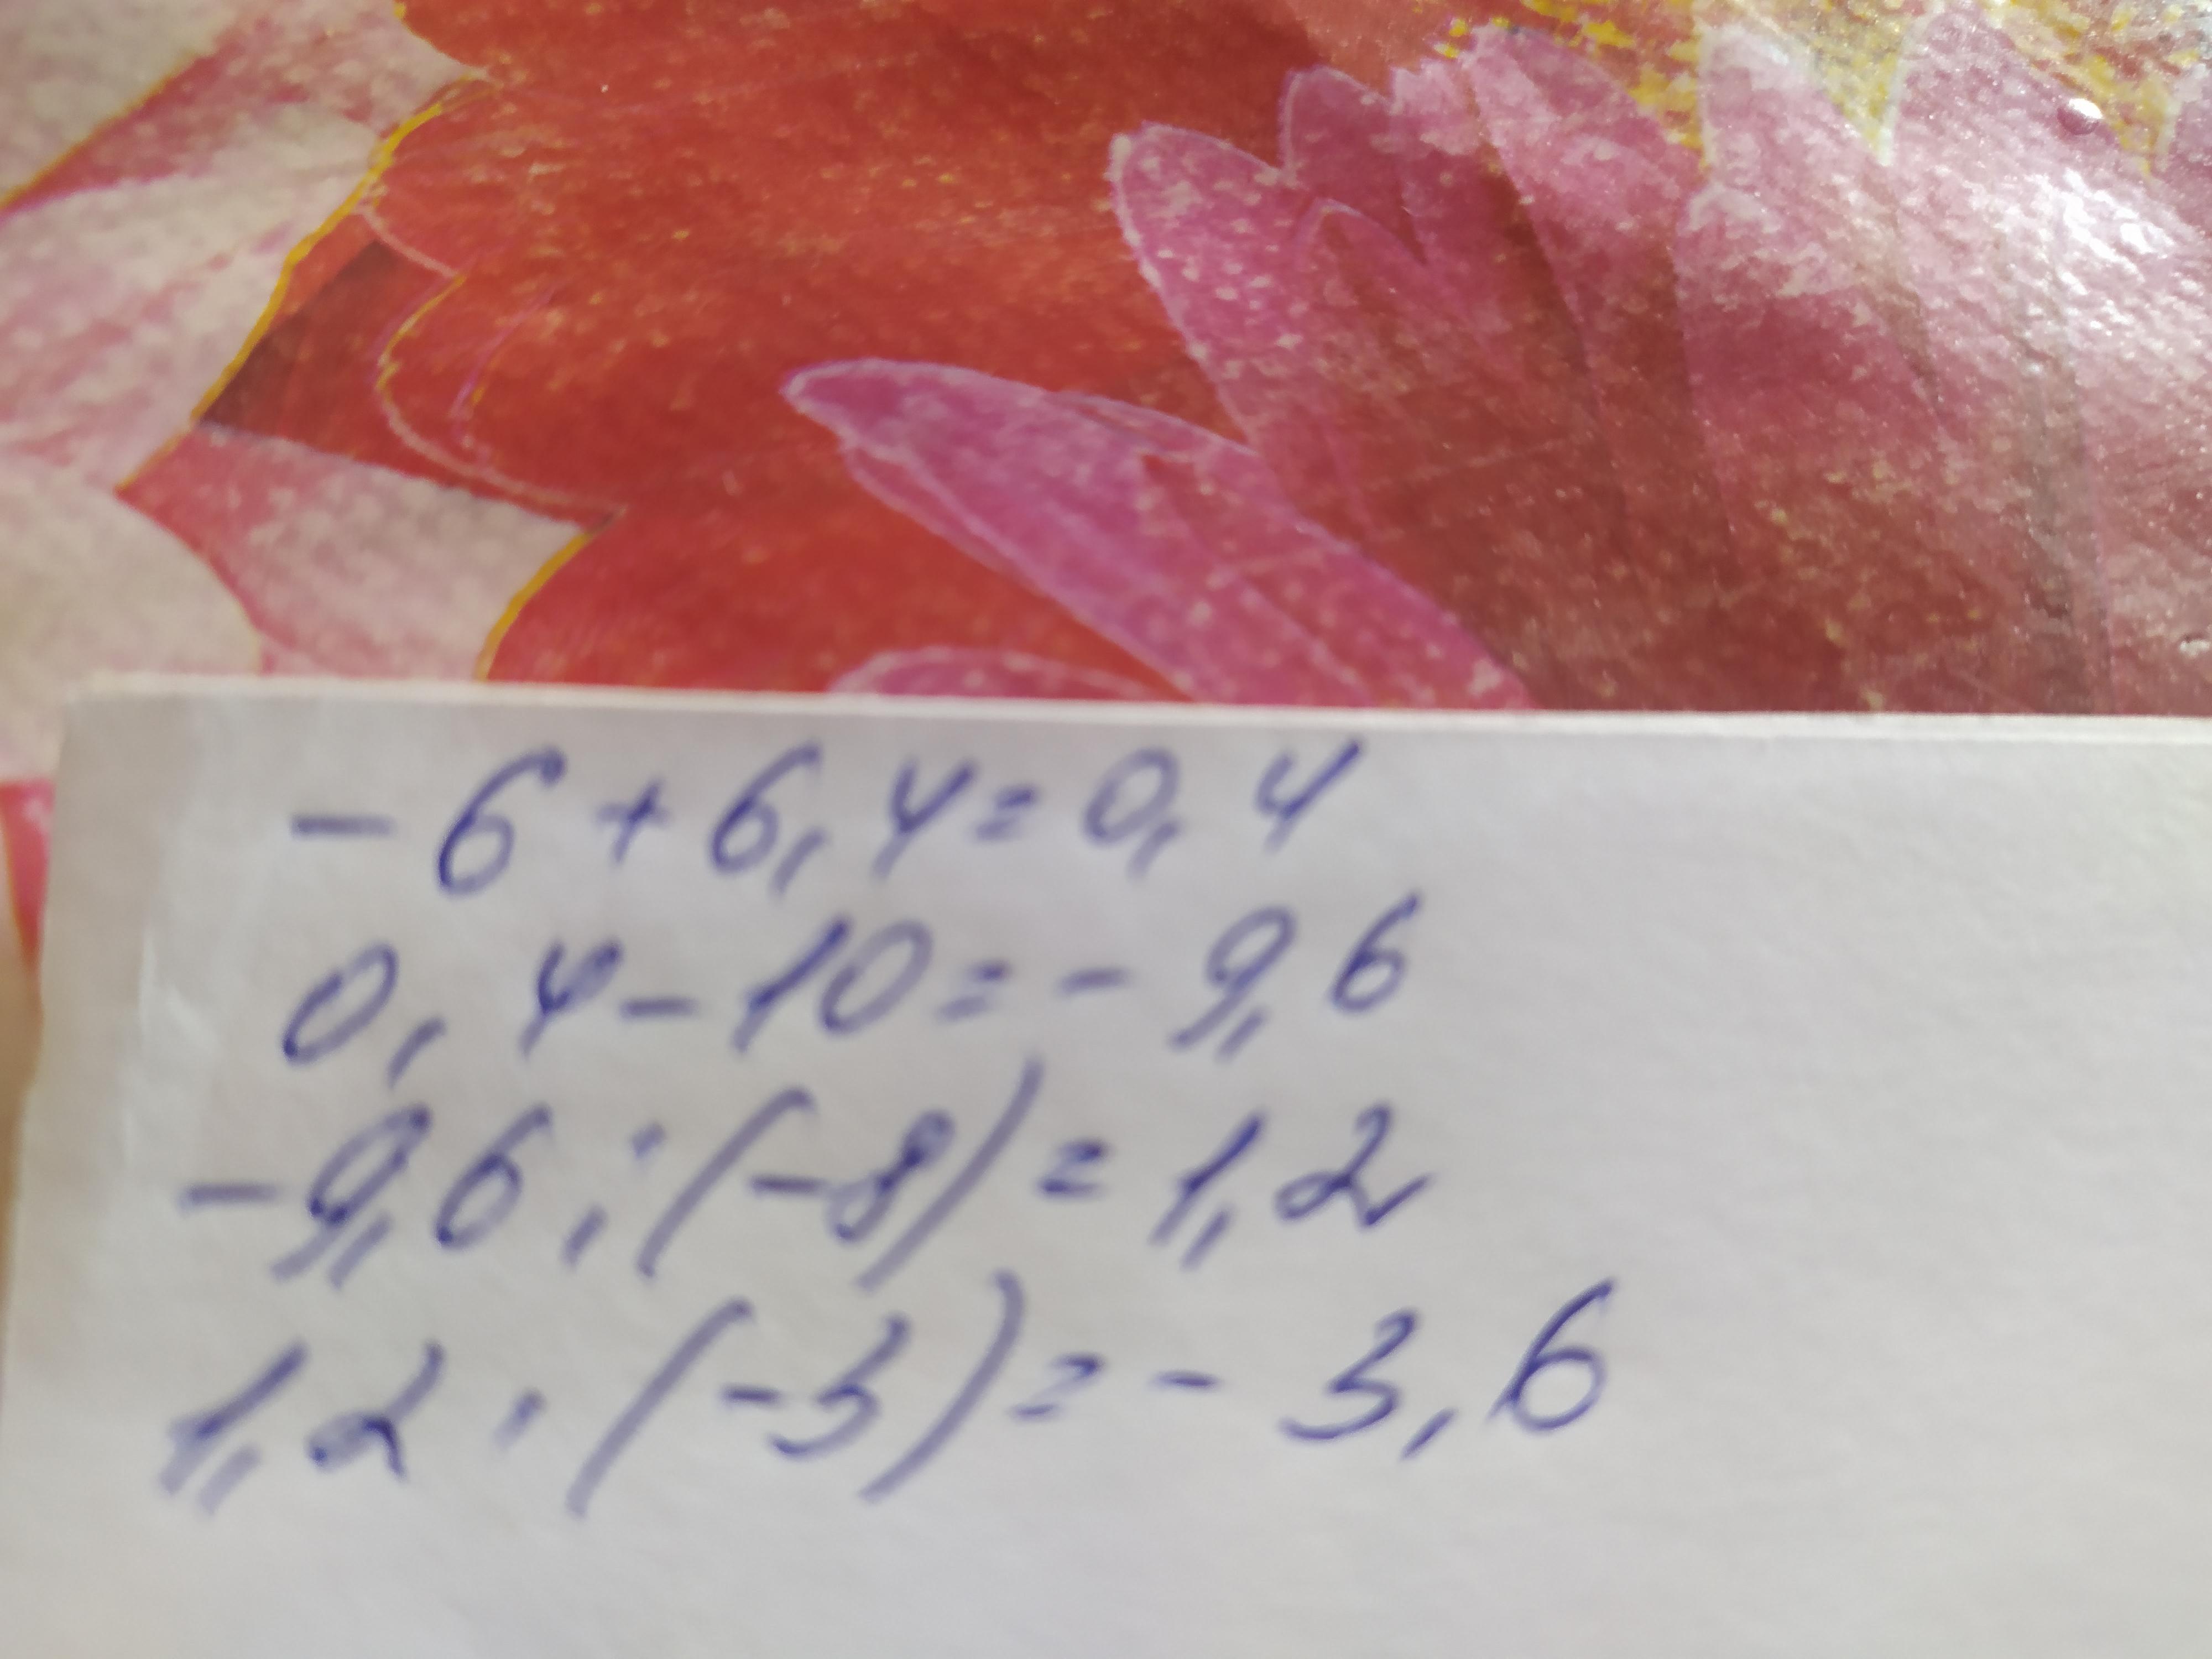 - 6 + 6,4 = 0,4
0,4 - 10 = - 9,6
- 9,6 : (-8) = 1,2
1,2 · (-3) = - 3,6